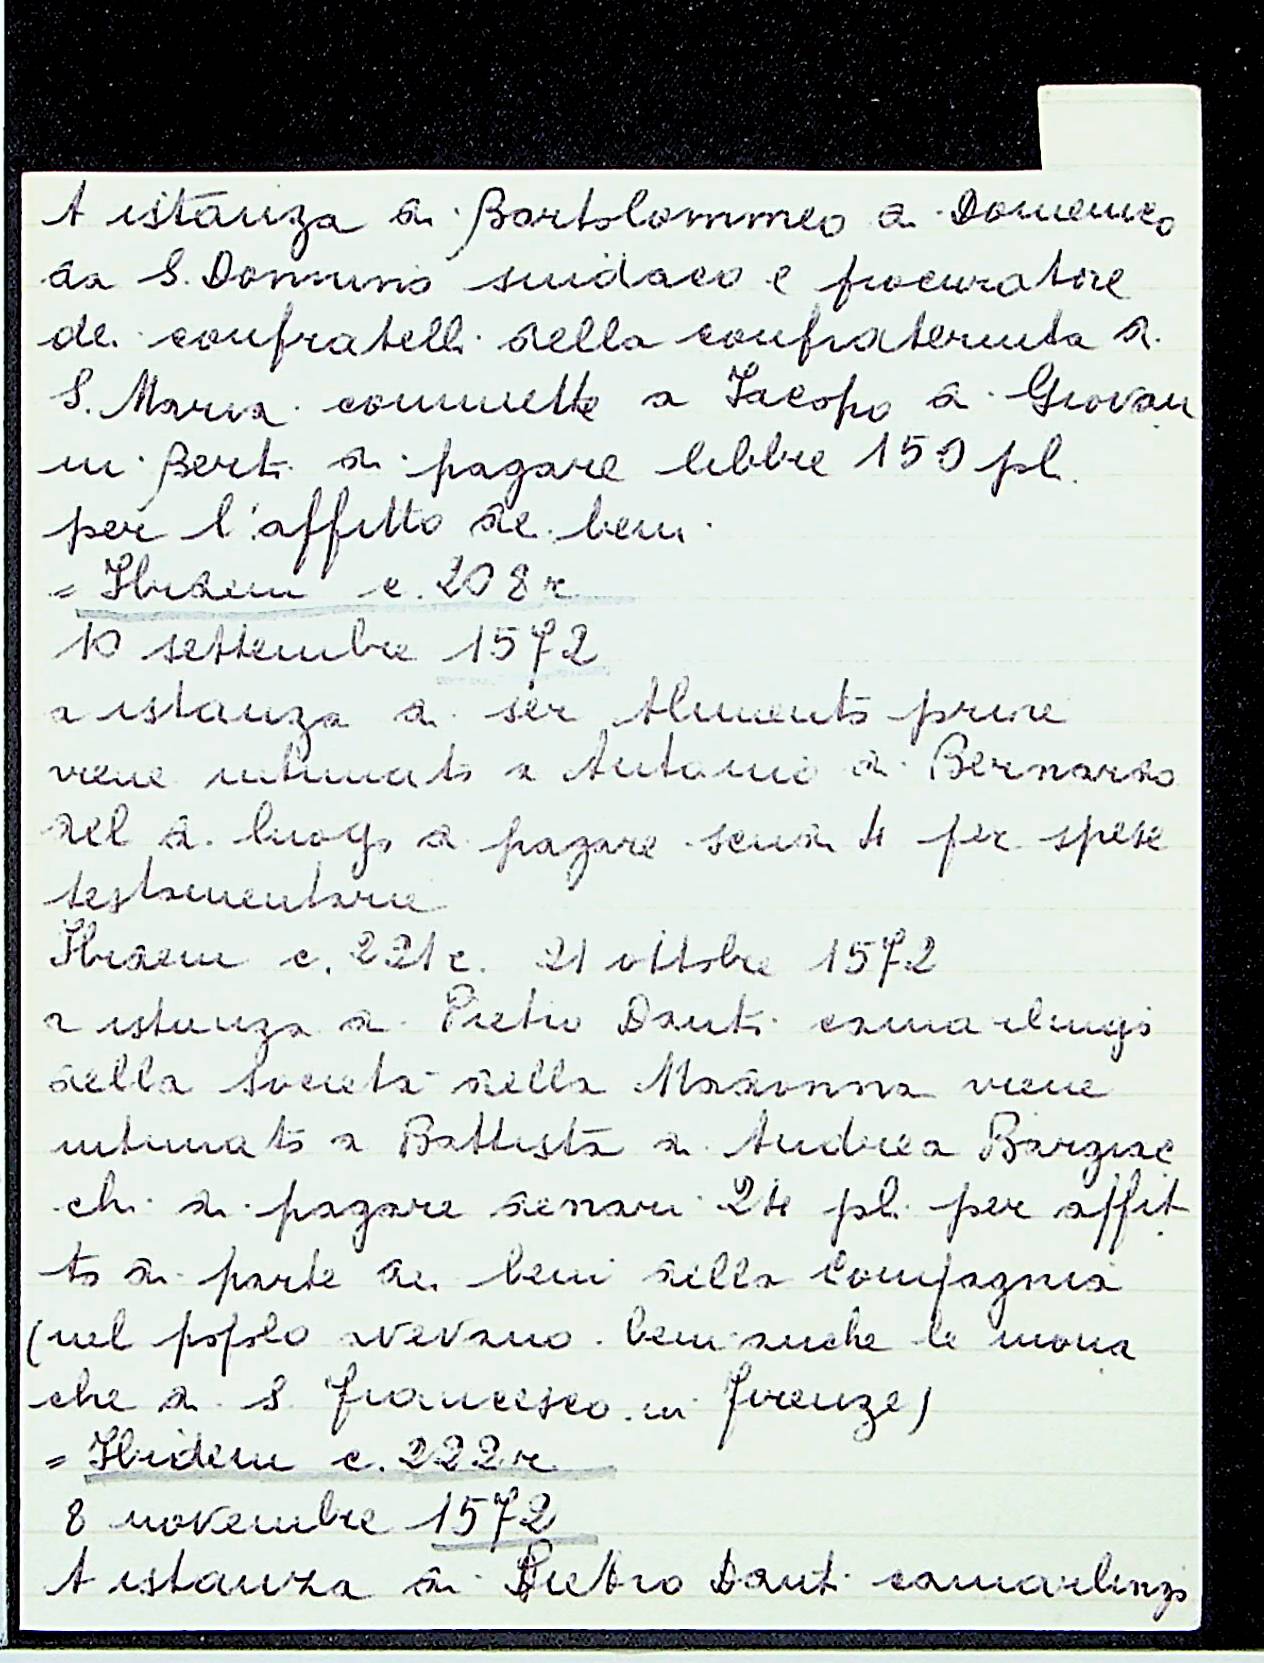 A istanza di Bartolommeo di Domenico
da S. Donnino sindaco e procuratore
dei confratelli della confraternita di
S. Maria commette a Iacopo di Giovan
ni Berti di pagare libbre 150 pl.
per l'affitto dei beni.
= Ibidem c. 208r
10 settembre 1572
a istanza di ser Alimento priore
viene intimato a Antonio di Bernardo
del d. luogo di pagare scudi 4 per spese
testamentarie
Ibidem c. 221r. 21 ottobre 1572
a istanza di Pietro Danti camarlingo
della Società della Madonna viene
intimato a Battista di Andrea Bargiac
chi di pagare denari 24 pl. per affit
to di parte dei beni della Compagnia
(nel popolo avevano beni anche le mona
che di S. Francesco in Firenze)
= Ibidem c. 222r
8 novembre 1572
A istanza di Pietro Danti camarlingo